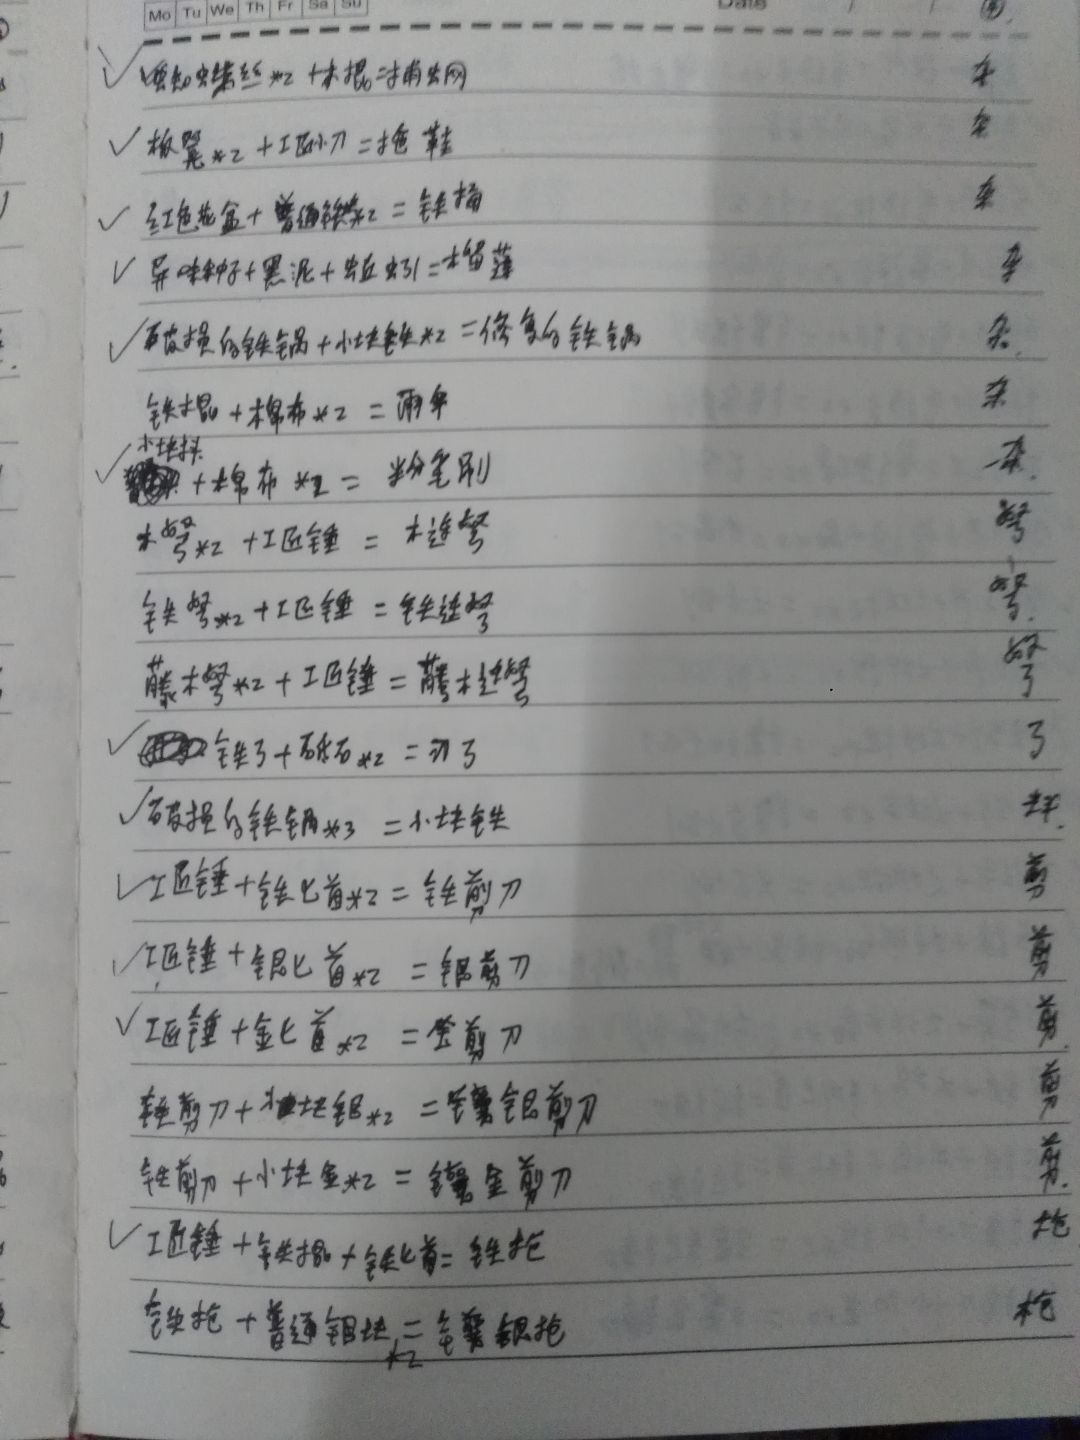 Mo Tu We Th Fr Sa Su Date / / ④
蜘蛛丝*2+木棍=捕虫网 杂
板凳*2+工匠小刀=拖鞋 杂
红色花盆+普通铁块*2=铁桶 杂
异味种子+黑泥+蚯蚓=榴莲 杂
破损的铁锅+小块铁*2=修复的铁锅 杂.
铁棍+棉布*2=雨伞 杂
小块
+棉布*2=粉笔刷 杂.
木弩*2+工匠锤=木连弩 弩
铁弩*2+工匠锤=铁连弩 弩.
藤木弩*2+工匠锤=藤木连弩 弩
铁弓+砾石*2=弓 弓
破损的铁锅*3=小块铁
工匠锤+铁匕首*2=铁剪刀 剪
工匠锤+银匕首*2=银剪刀 剪
工匠锤+金匕首*2=金剪刀 剪.
铁剪刀+小块银*2=镶银剪刀 剪
铁剪刀+小块金*2=镶金剪刀 剪.
工匠锤+铁棍+铁匕首=铁枪 枪
铁枪+普通银块*2=镶银枪 枪